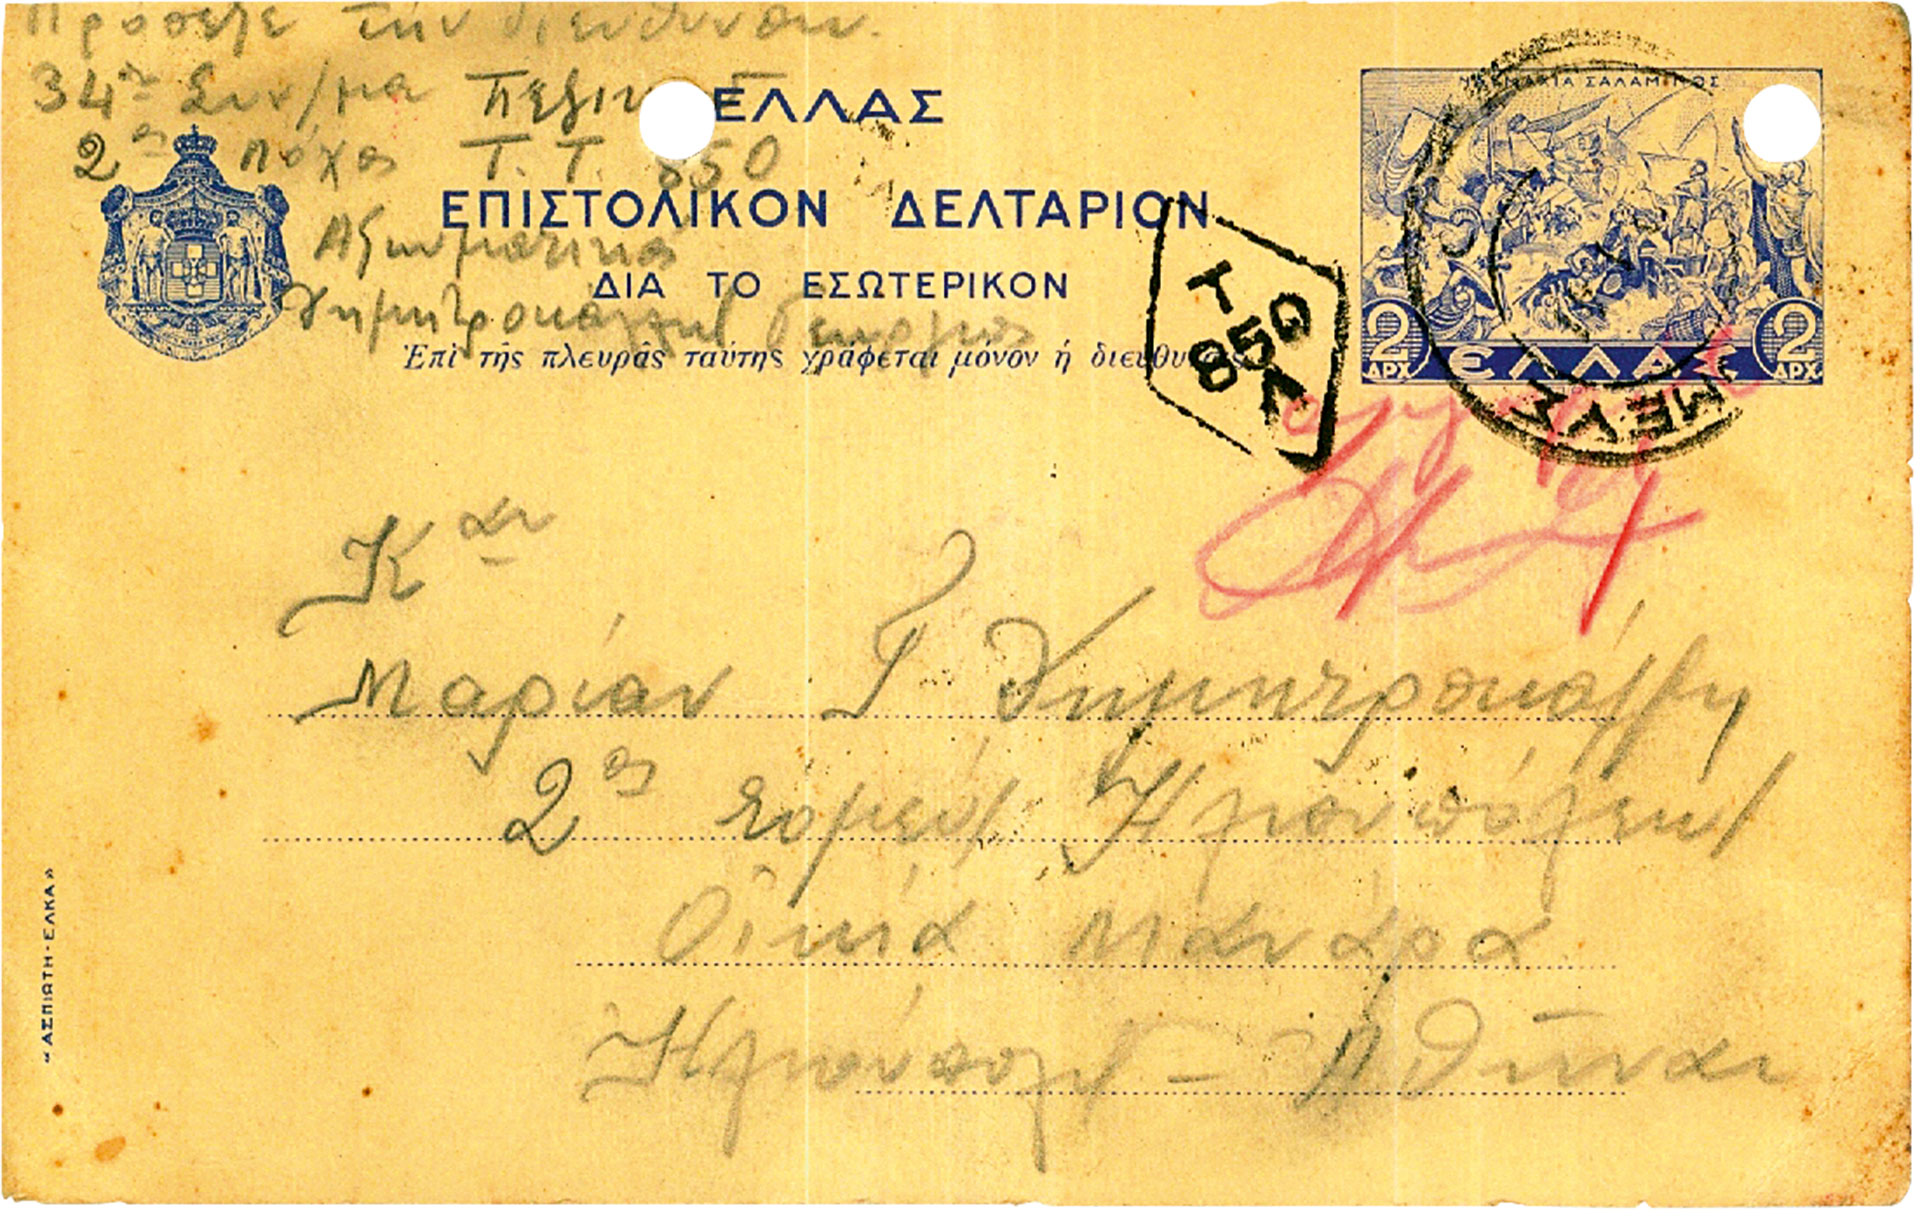 Πρόσεχε την διεύθυνσιν.
34ον Συν/μα Πεζικού
2ος λόχος Τ.Τ. 850
Αξιωματικός
Δημητροκάλλης Γεώργιος
ΕΛΛΑΣ
ΕΠΙΣΤΟΛΙΚΟΝ ΔΕΛΤΑΡΙΟΝ
ΔΙΑ ΤΟ ΕΣΩΤΕΡΙΚΟΝ
Ἐπὶ τῆς πλευρᾶς ταύτης γράφεται μόνον ἡ διεύθυνσις
ΝΑΥΜΑΧΙΑ ΣΑΛΑΜΙΝΟΣ
2 ΔΡΧ. ΕΛΛΑΣ 2 ΔΡΧ.
Τ
850
ΤΟΜΕΥΣ
Καν
Μαρίαν Γ Δημητροκάλλη
2ος τομεύς Ηλιουπόλεως
Οικία Μανάρα
Ηλιούπολις - Αθήναι
«ΑΣΠΙΩΤΗ-ΕΛΚΑ»